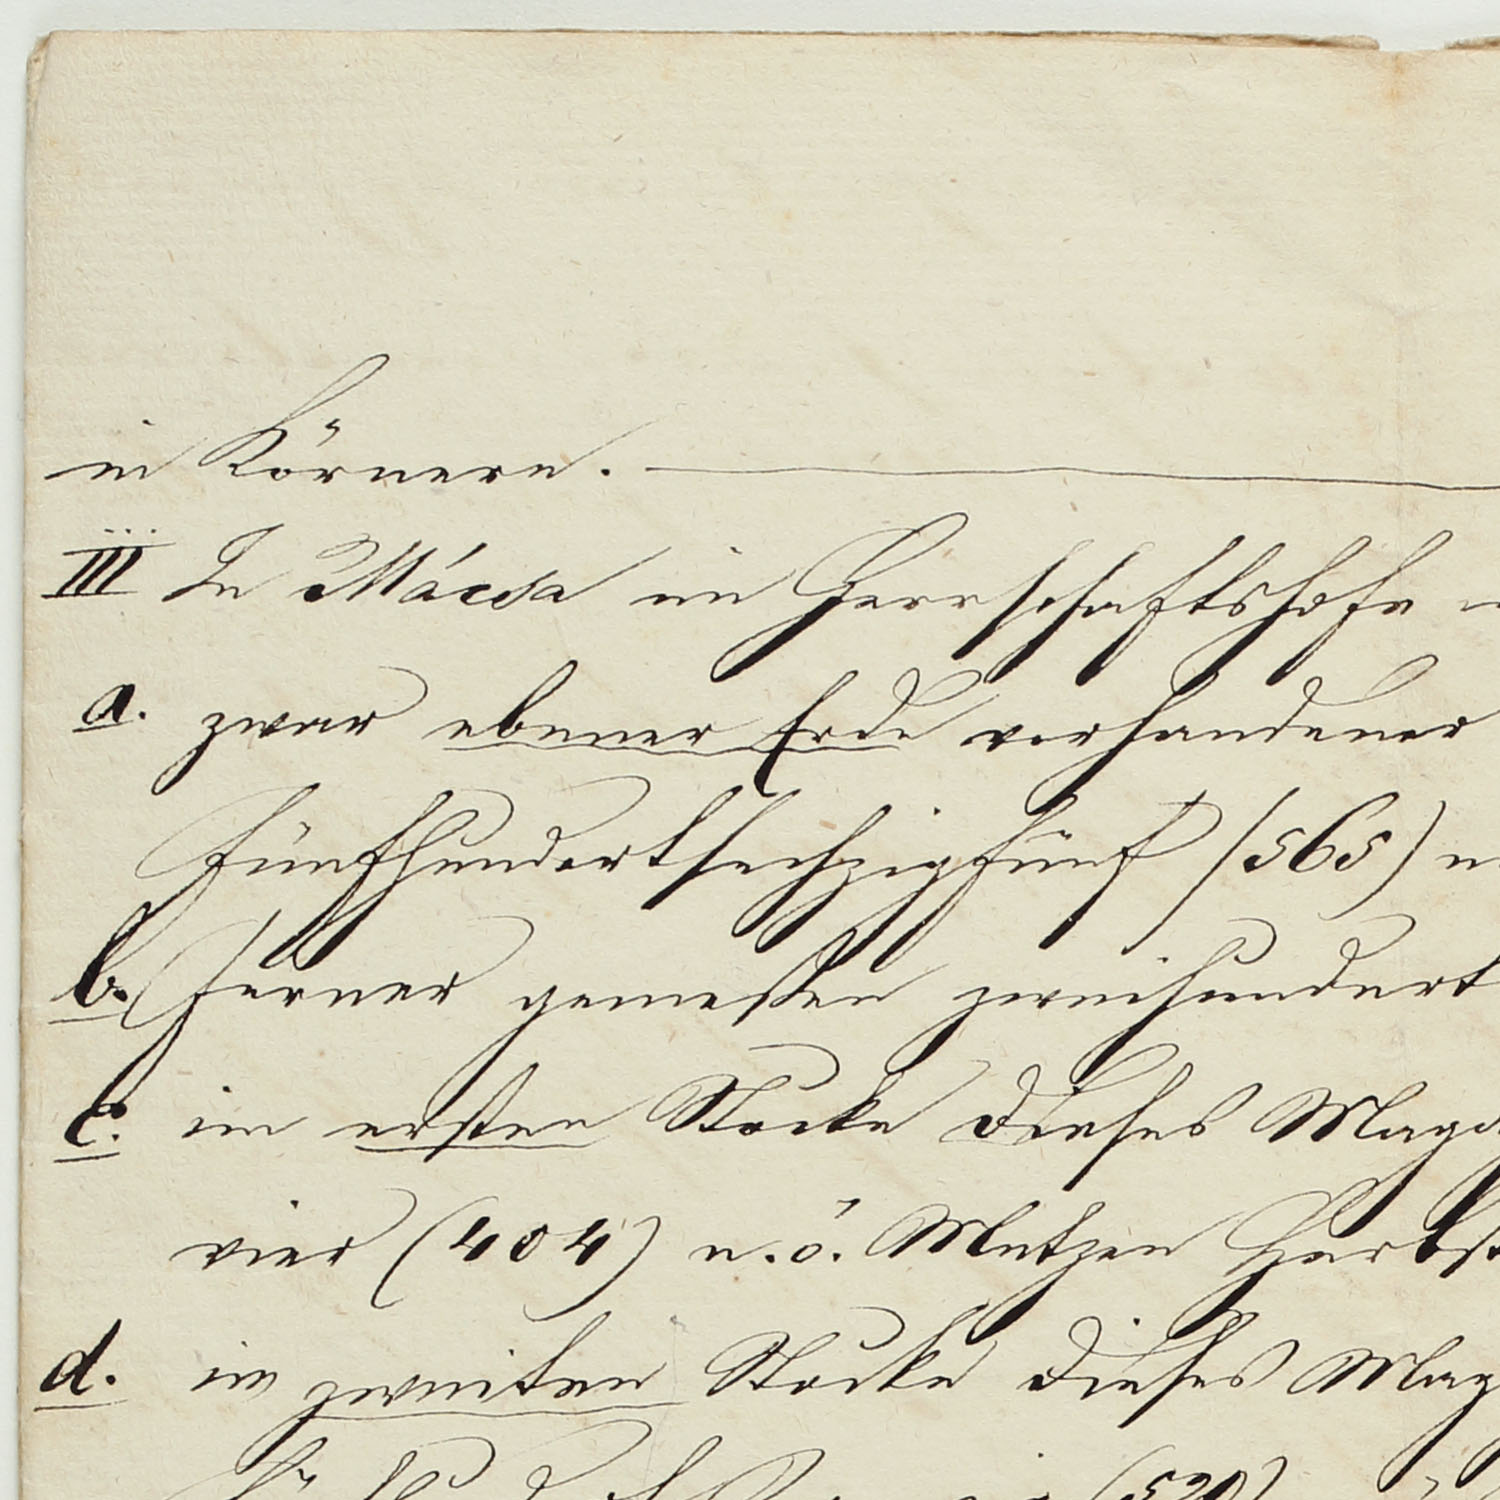 in Körnern.
III In Mácsa im Herrschaftshofe
a. zwar ebener Erde vorhandener
fünfhundertsechzigfünf (565) n
b. Ferner gemessen zweihundert
c. im ersten Stocke dieses Maga
vier (404) n. ö. Metzen Herbst
d. im zweiten Stocke dieses Mag